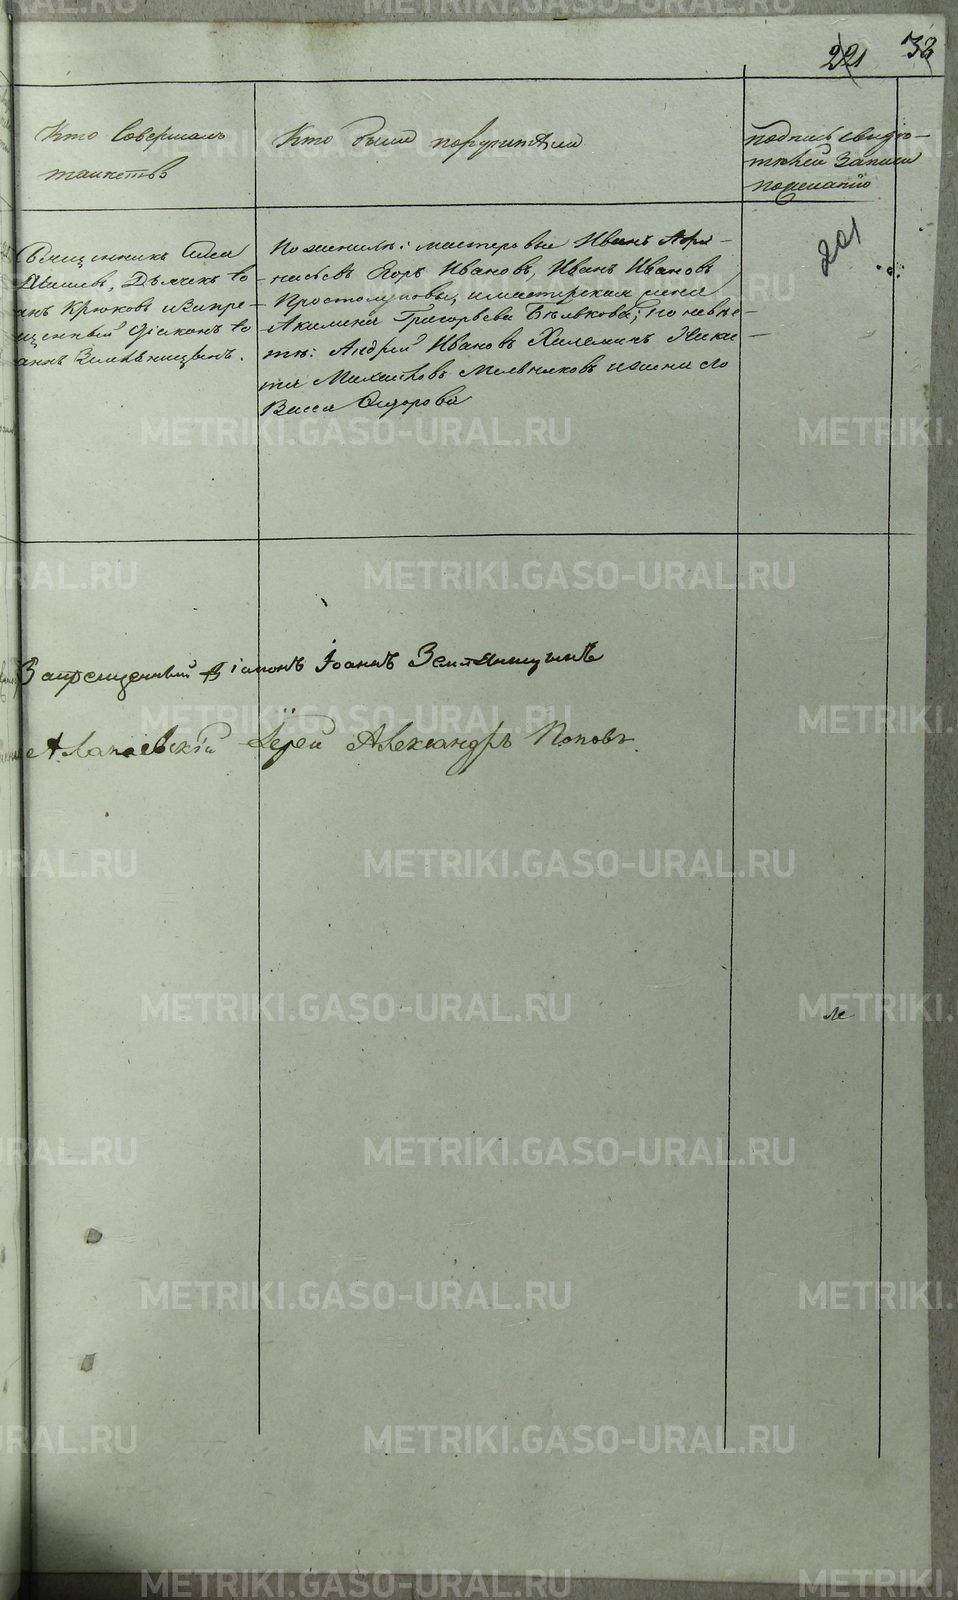 221 32
Кто совершалъ
таинство
Кто были поручители
подпись свидѣ-
телей записи
пожеланію
201
Священникъ
Дьячекъ Іо
анъ Крюковъ и запре
щенный діаконъ Іо
аннъ Земляницынъ.
По женихѣ: мастеровые Иванъ Афа-
насьевъ Егоръ Ивановъ, Иванъ Ивановъ
Простолуповы, и мастерская жена
Акилина Григорьева Бѣлькова; по невѣс-
тѣ: Андрей Ивановъ Ники-
та Михайловъ Мельниковъ и жена его
Васса Сидорова
Запрещенный Діаконъ Іоаннъ Земляницынъ
Алапаевскій Іерей Александръ Поповъ.
METRIKI.GASO-URAL.RU